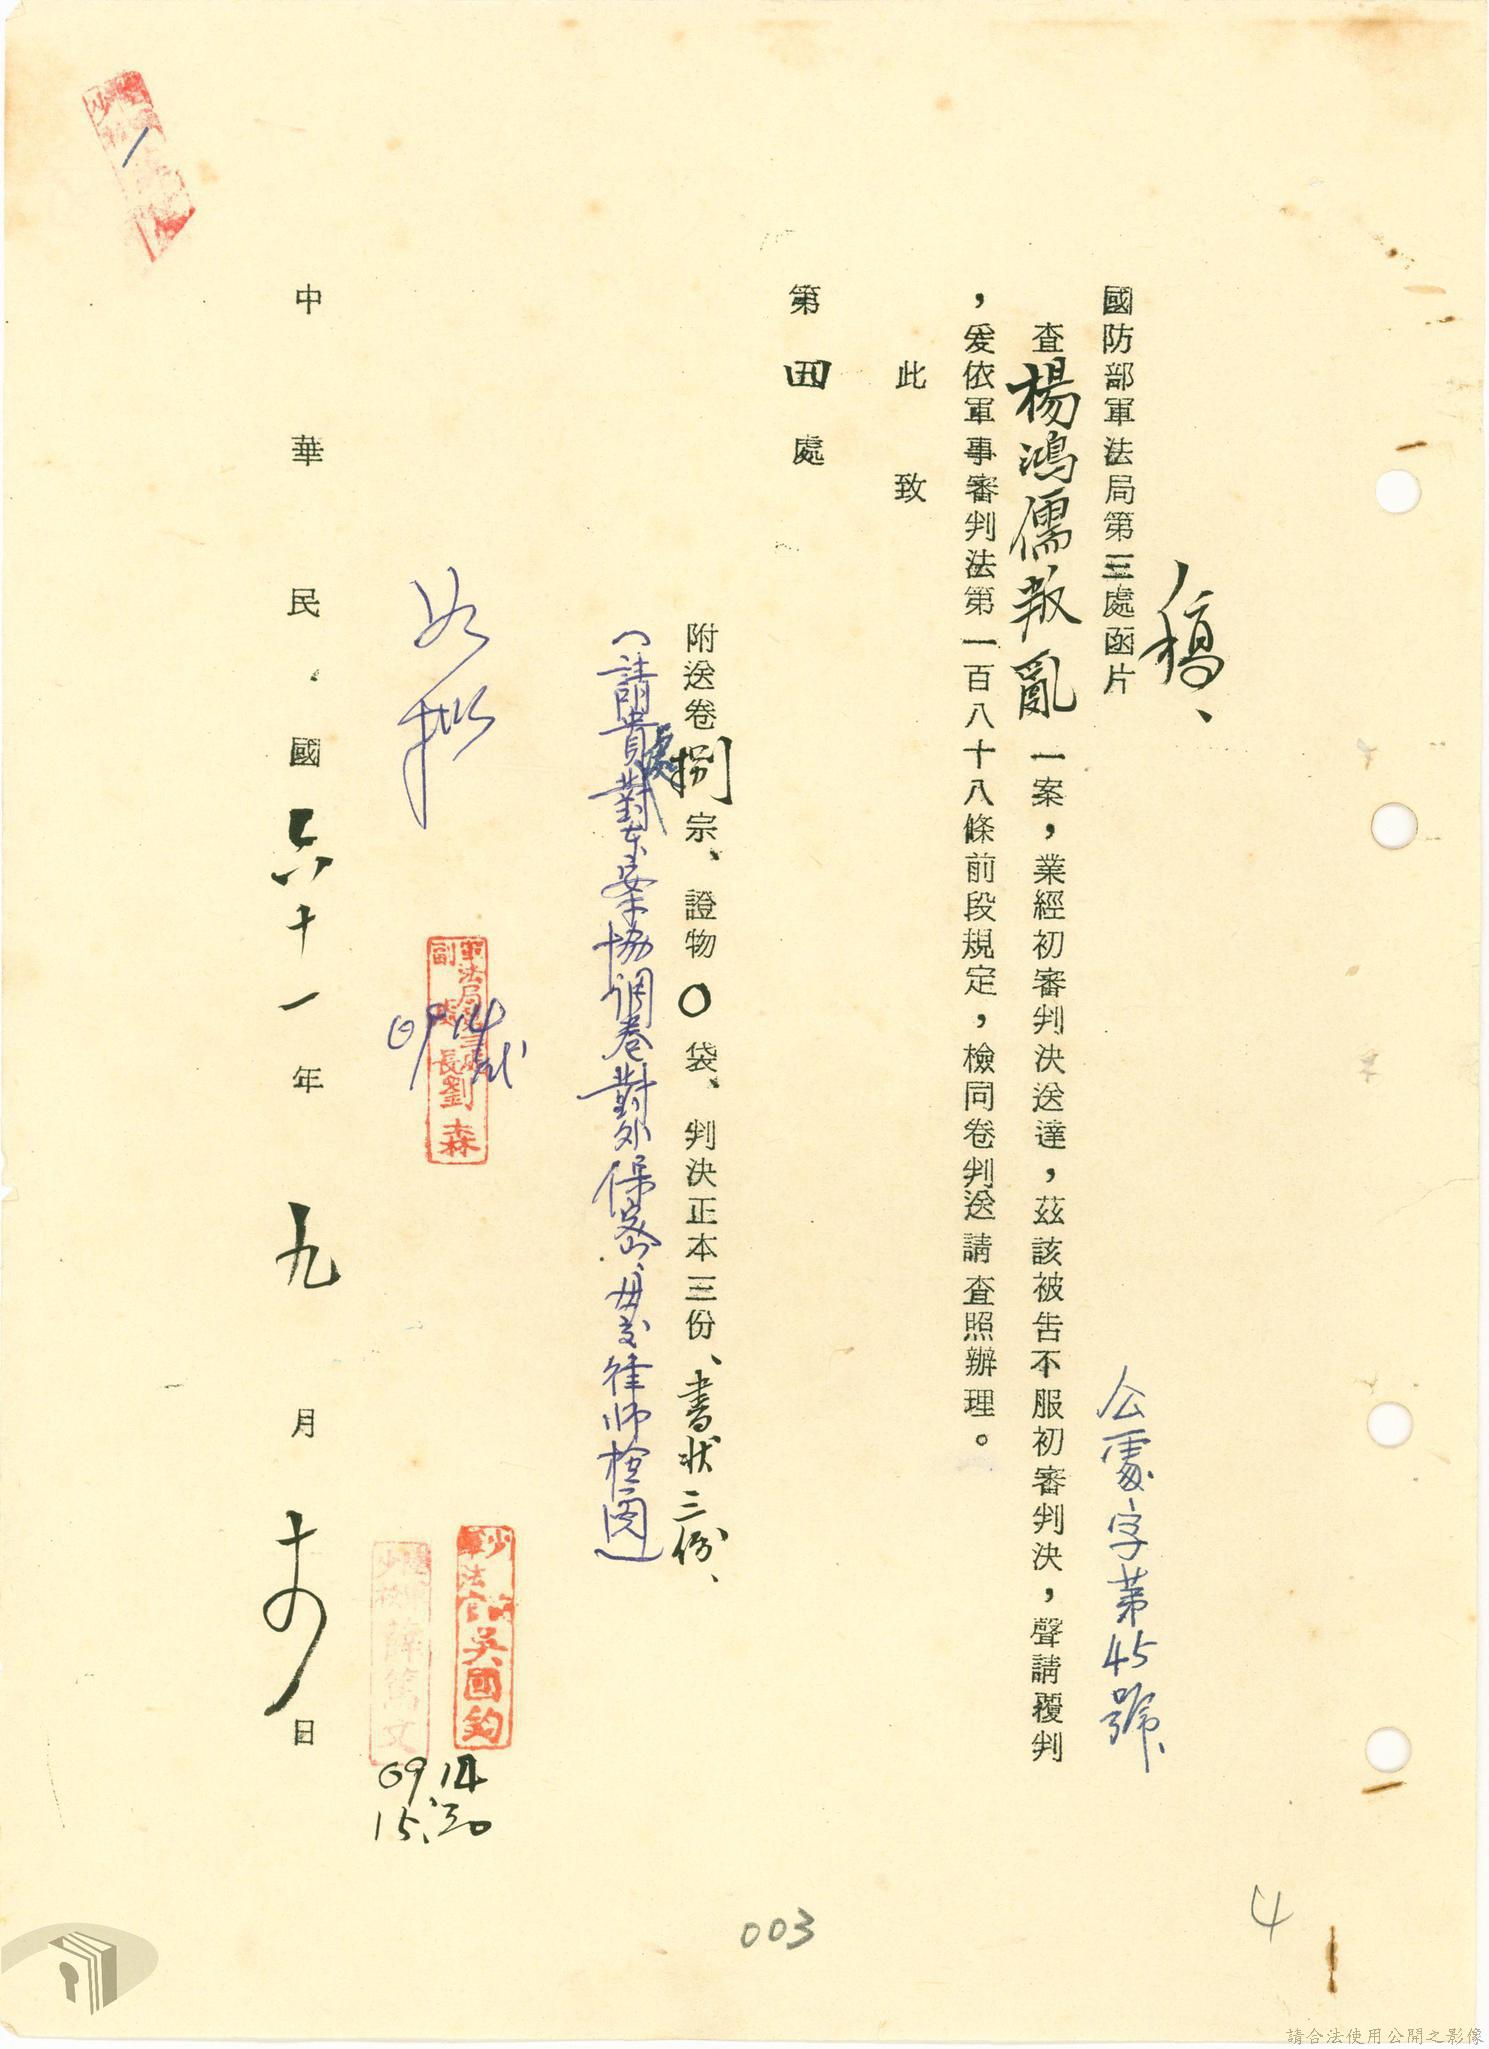 稿、
國防部軍法局第三處函片
公處字第45號、
查楊鴻儒叛亂一案，業經初審判決送達，茲該被告不服初審判決，聲請覆判
，爰依軍事審判法第一百八十八條前段規定，檢同卷判送請查照辦理。
此致
第四處
附送卷捌宗、證物〇袋、判決正本三份、書狀三份、
（請貴處對本案協調卷對外保密、毋交律師檢閱）
如擬
軍法局第三處
副處長劉森
09 14
少軍法官吳國鈞
薛篤文
09.14
15:30
中華民國六十一年九月十四日
003
4
請合法使用公開之影像